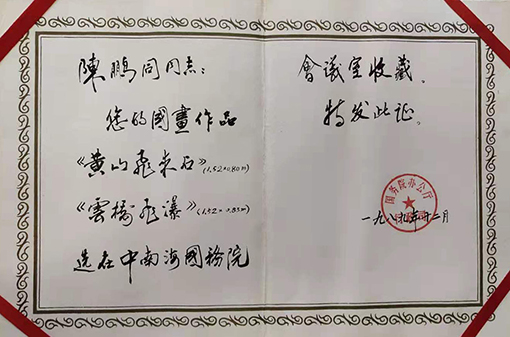 陳鵬同同志：
您的國畫作品
《黄山飛来石》(1.52×0.80m)
《雲橋飛瀑》(1.52×0.83m)
选在中南海國務院
會议室收藏、
特发此证。
国务院办公厅
一九八九年十二月